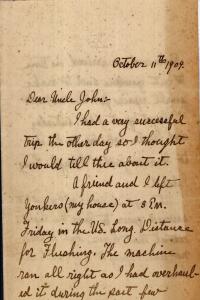 October 11th 1909.
Dear Uncle John:-
I had a very successful
trip the other day so I thought
I would tell thee about it.
A friend and I left
Yonkers (my house) at 8 En.
Friday in the U.S. Long. Distance
for Flushing. The machine
ran all right as I had overhaul-
ed it during the past few